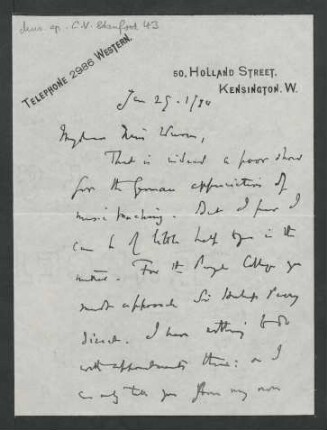 Mus. ep. C. V. Stanford 43
TELEPHONE 2986 WESTERN.
50, HOLLAND STREET,
KENSINGTON. W.
Jan 29.
My dear Miss
That is indeed a poor show
for the German appreciation of
music teaching. But I fear I
can be of little help to you in the
matter. For the College you
must approach Sir Hubert Parry
direct. I have nothing to do
with appointments there: as I
can only tell you from my own